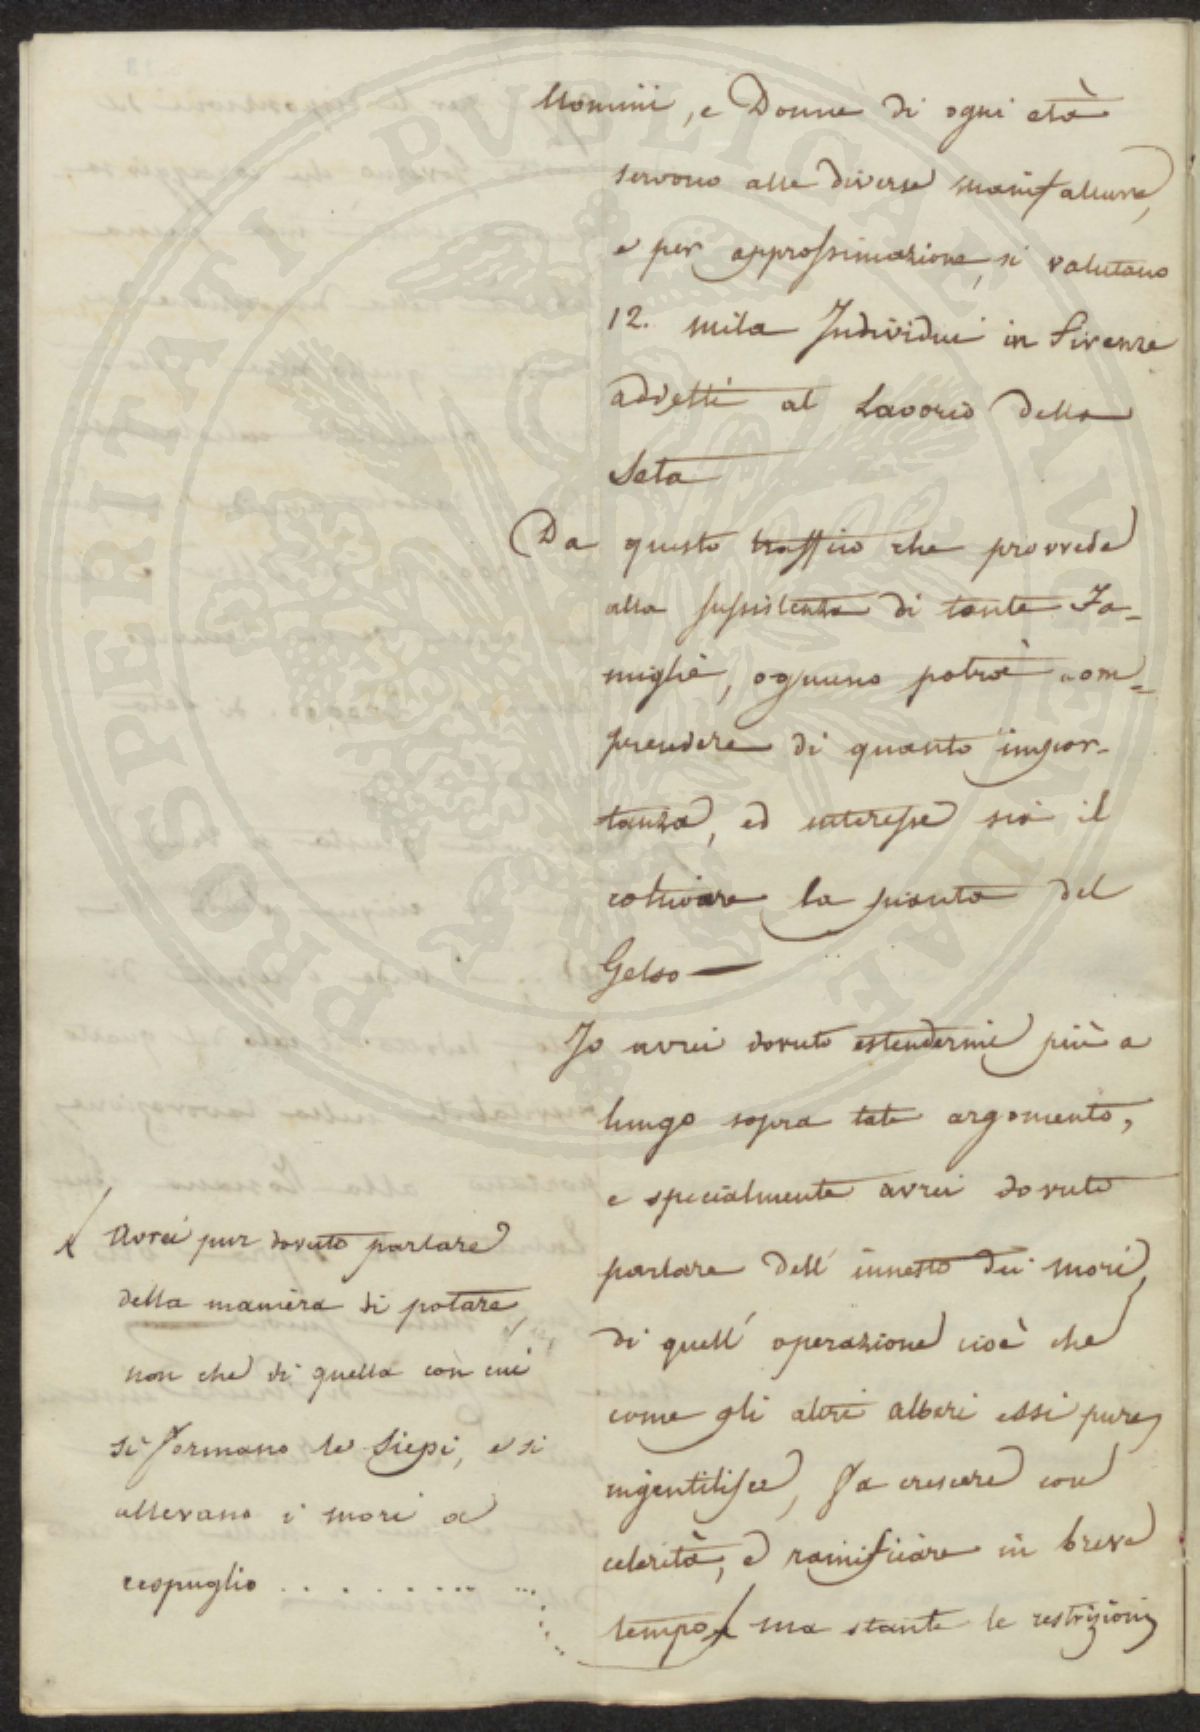 Uomini, e Donne di ogni età
servono alle diverse manifatture,
e per approssimazione, si valutano
12. mila Individui in Firenze
addetti al Lavorio della
Seta
Da questo traffico che provvede
alla sussistenza di tante Fa-
miglie, ognuno potrà com-
prendere di quanto impor-
tanza, ed interesse sia il
coltivare la pianta del
Gelso —
Io avrei dovuto estendermi più a
lungo sopra tale argomento,
e specialmente avrei dovuto
parlare dell' innesto dei mori,
di quell' operazione cioè che
come gli altri alberi essi pure
ingentilisce, fa crescere con
celerità, e ramificare in breve
tempo ma stante le restrizioni
Avrei pur dovuto parlare
della maniera di potare,
non che di quella con cui
si formano le Siepi, e si
allevano i mori a
cespuglio . . . . . . . .
PROSPERITATI PVBLICAE AVGENDAE